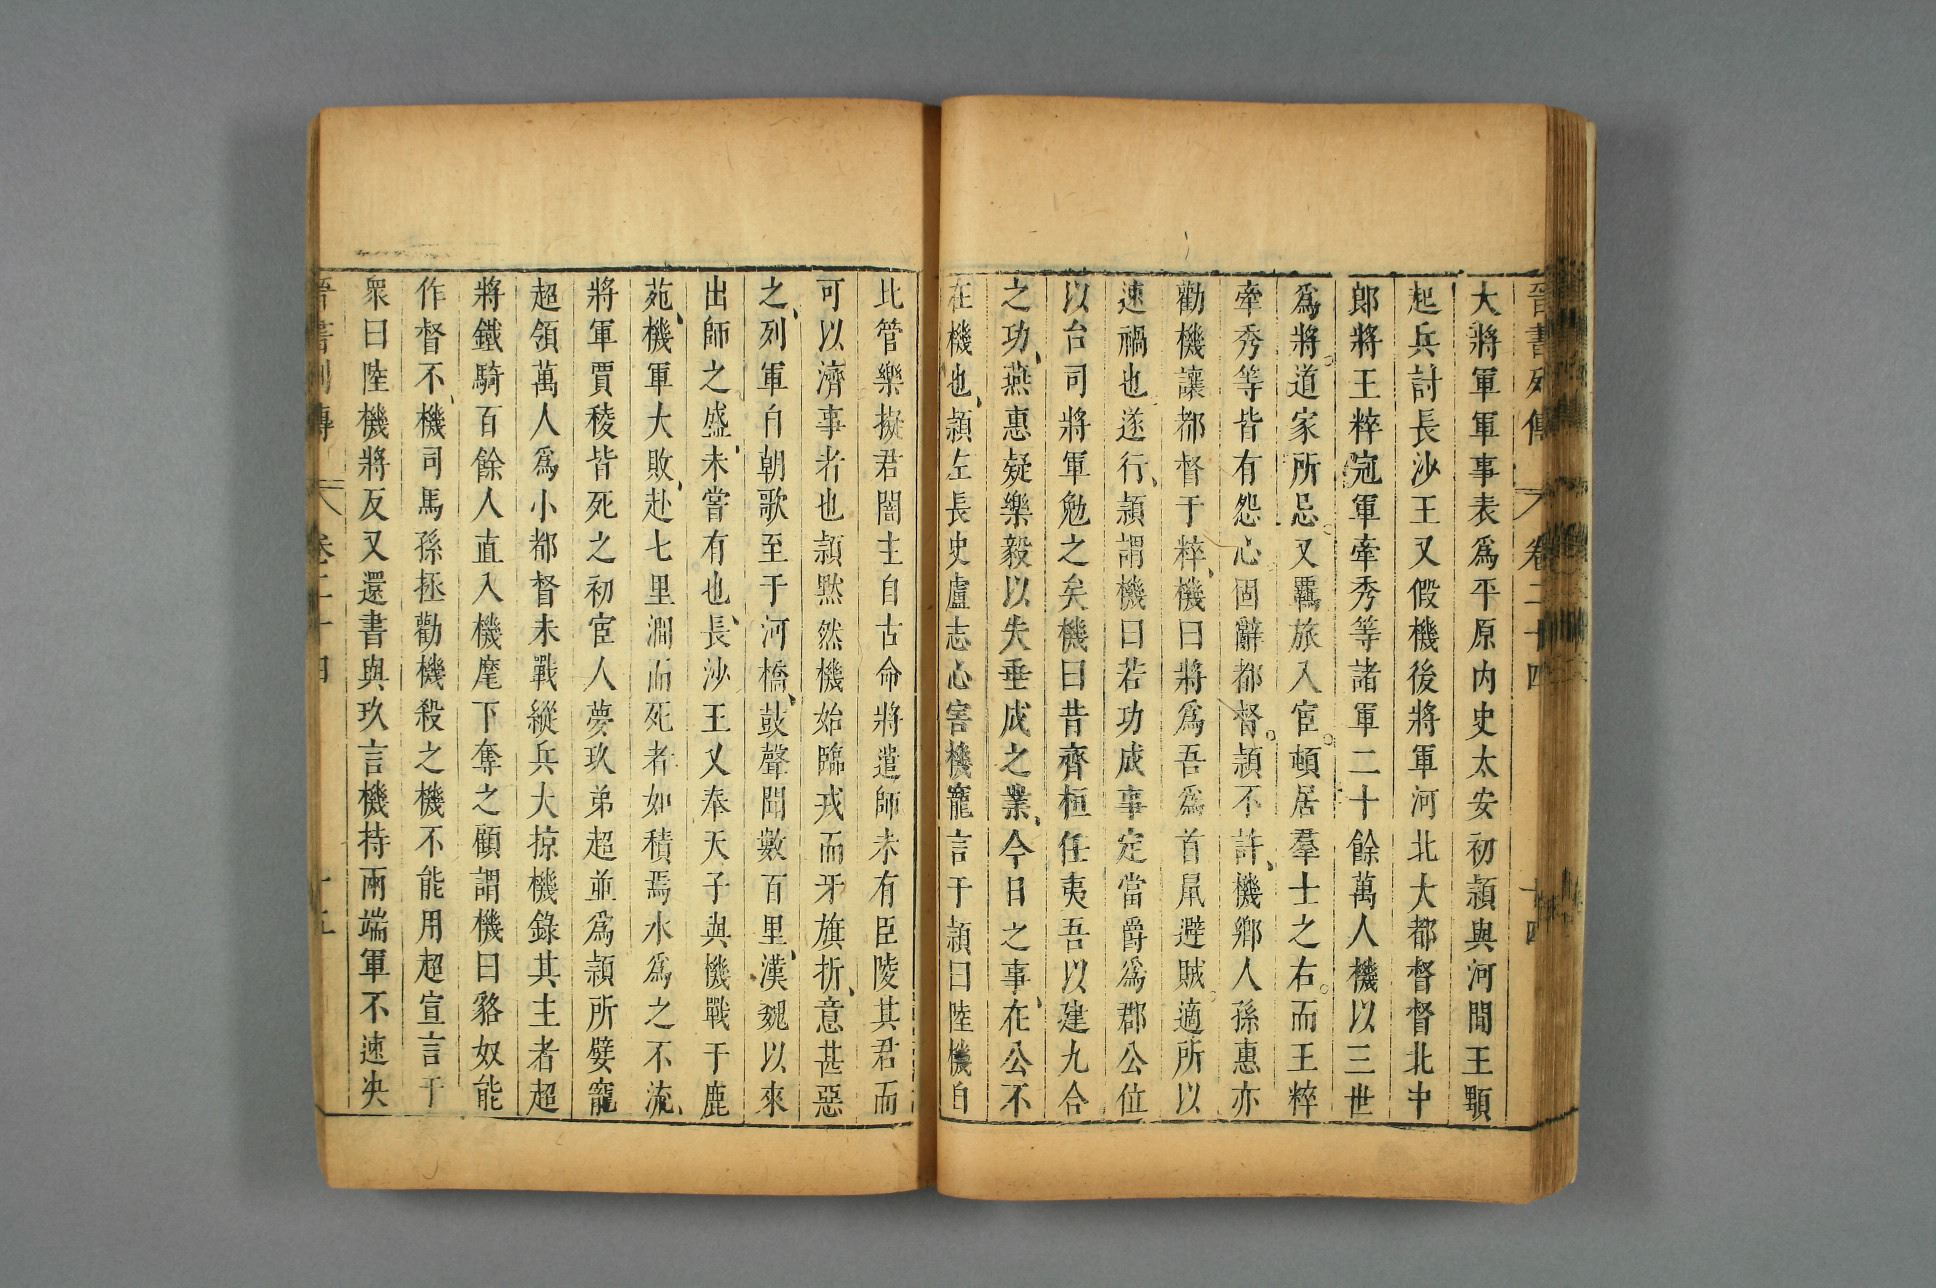 晉書列傳 卷二十四 十四
大將軍軍事表爲平原內史太安初頴與河間王顒
起兵討長沙王乂假機後將軍河北大都督督北中
郎將王粹冠軍牽秀等諸軍二十餘萬人機以三世
爲將道家所忌又羈旅入宦頓居羣士之右而王粹
牽秀等皆有怨心固辭都督頴不許機鄉人孫惠亦
勸機讓都督于粹機曰將爲吾爲首鼠避賊適所以
速禍也遂行頴謂機曰若功成事定當爵爲郡公位
以台司將軍勉之矣機曰昔齊桓任夷吾以建九合
之功燕惠疑樂毅以失垂成之業今日之事在公不
在機也頴左長史盧志心害機寵言于頴曰陸機自
比管樂擬君闇主自古命將遣師未有臣陵其君而
可以濟事者也頴默然機始臨戎而牙旗折意甚惡
之列軍自朝歌至于河橋鼓聲聞數百里漢魏以來
出師之盛未嘗有也長沙王乂奉天子與機戰于鹿
苑機軍大敗赴七里澗而死者如積焉水爲之不流
將軍賈稜皆死之初宦人夢玖弟超並爲頴所嬖寵
超領萬人爲小都督未戰縱兵大掠機錄其主者超
將鐵騎百餘人直入機麾下奪之顧謂機曰貉奴能
作督不機司馬孫拯勸機殺之機不能用超宣言于
衆曰陸機將反又還書與玖言機持兩端軍不速決
晉書列傳 卷二十四 十五